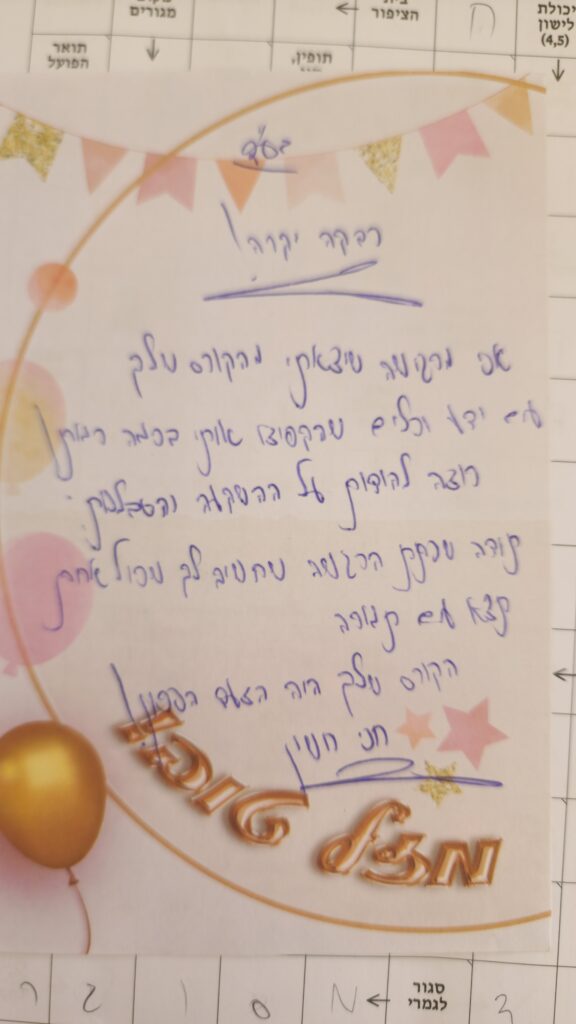 בית
הציפור
ה
יכולת
לישון
(4,5)
מגורים
תואר
הפועל
תופין,
בס"ד
רבקה יקרה!
אני מרגישה שיצאתי מהקורס שלך
עם ידע וכלים שהקפיצו אותי בכמה רמות!
רוצה להודות על ההשקעה והסבלנות,
תודה שנתת הרגשה שחשוב לך שכל אחת
תצא עם תוצרת
הקורס שלך היה הצעד הנכון!
חני
מזל טוב!
סגור
לגמרי